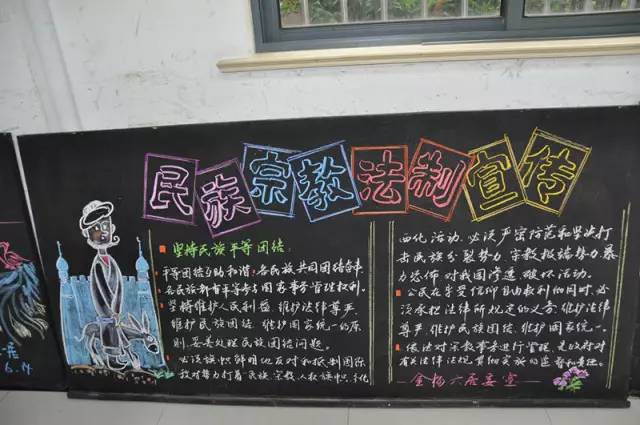 民族宗教法制宣传
坚持民族平等团结:
平等团结互助和谐,各民族共同团结奋斗
各民族都有平等参与国家事务管理权利。
坚持维护人民利益、维护法律尊严
维护民族团结、维护国家统一的原
则,妥善处理民族团结问题。
必须旗帜鲜明地反对和抵制国际
敌对势力打着"民族、宗教、人权"旗帜,分化
西化活动、必须严密防范和坚决打
击民族分裂势力、宗教极端势力、暴
力恐怖 对我国渗透 破坏活动。
公民在享受信仰自由权利的同时,必
须承担法律所规定的义务、维护法律
尊严,维护民族团结、维护国家统一。
依法对宗教事务进行管理,是政府对
有关法律法规、贯彻实施的监督和管理。
金杨六居委宣
居
6.14